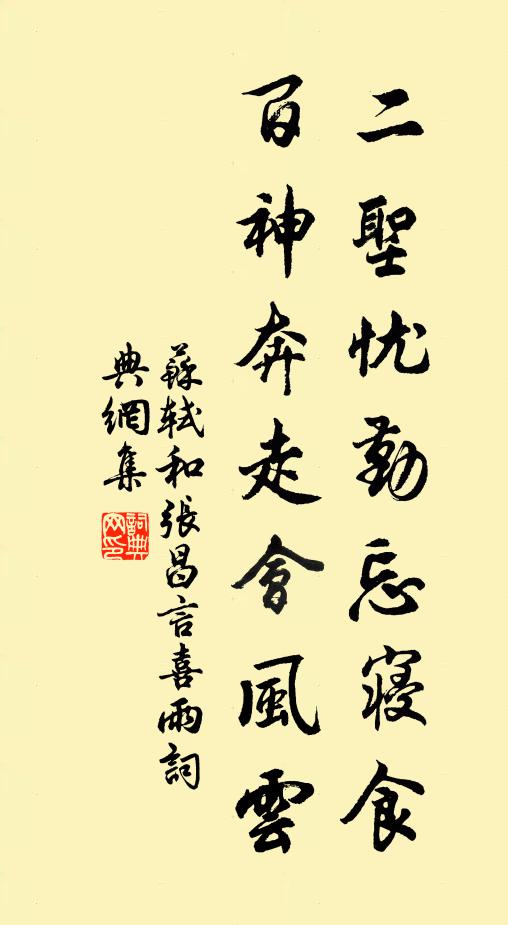 二聖忧勤忘寢食
百神奔走會風雲
蘇軾和張昌言喜雨詞
典網集
詞典網印